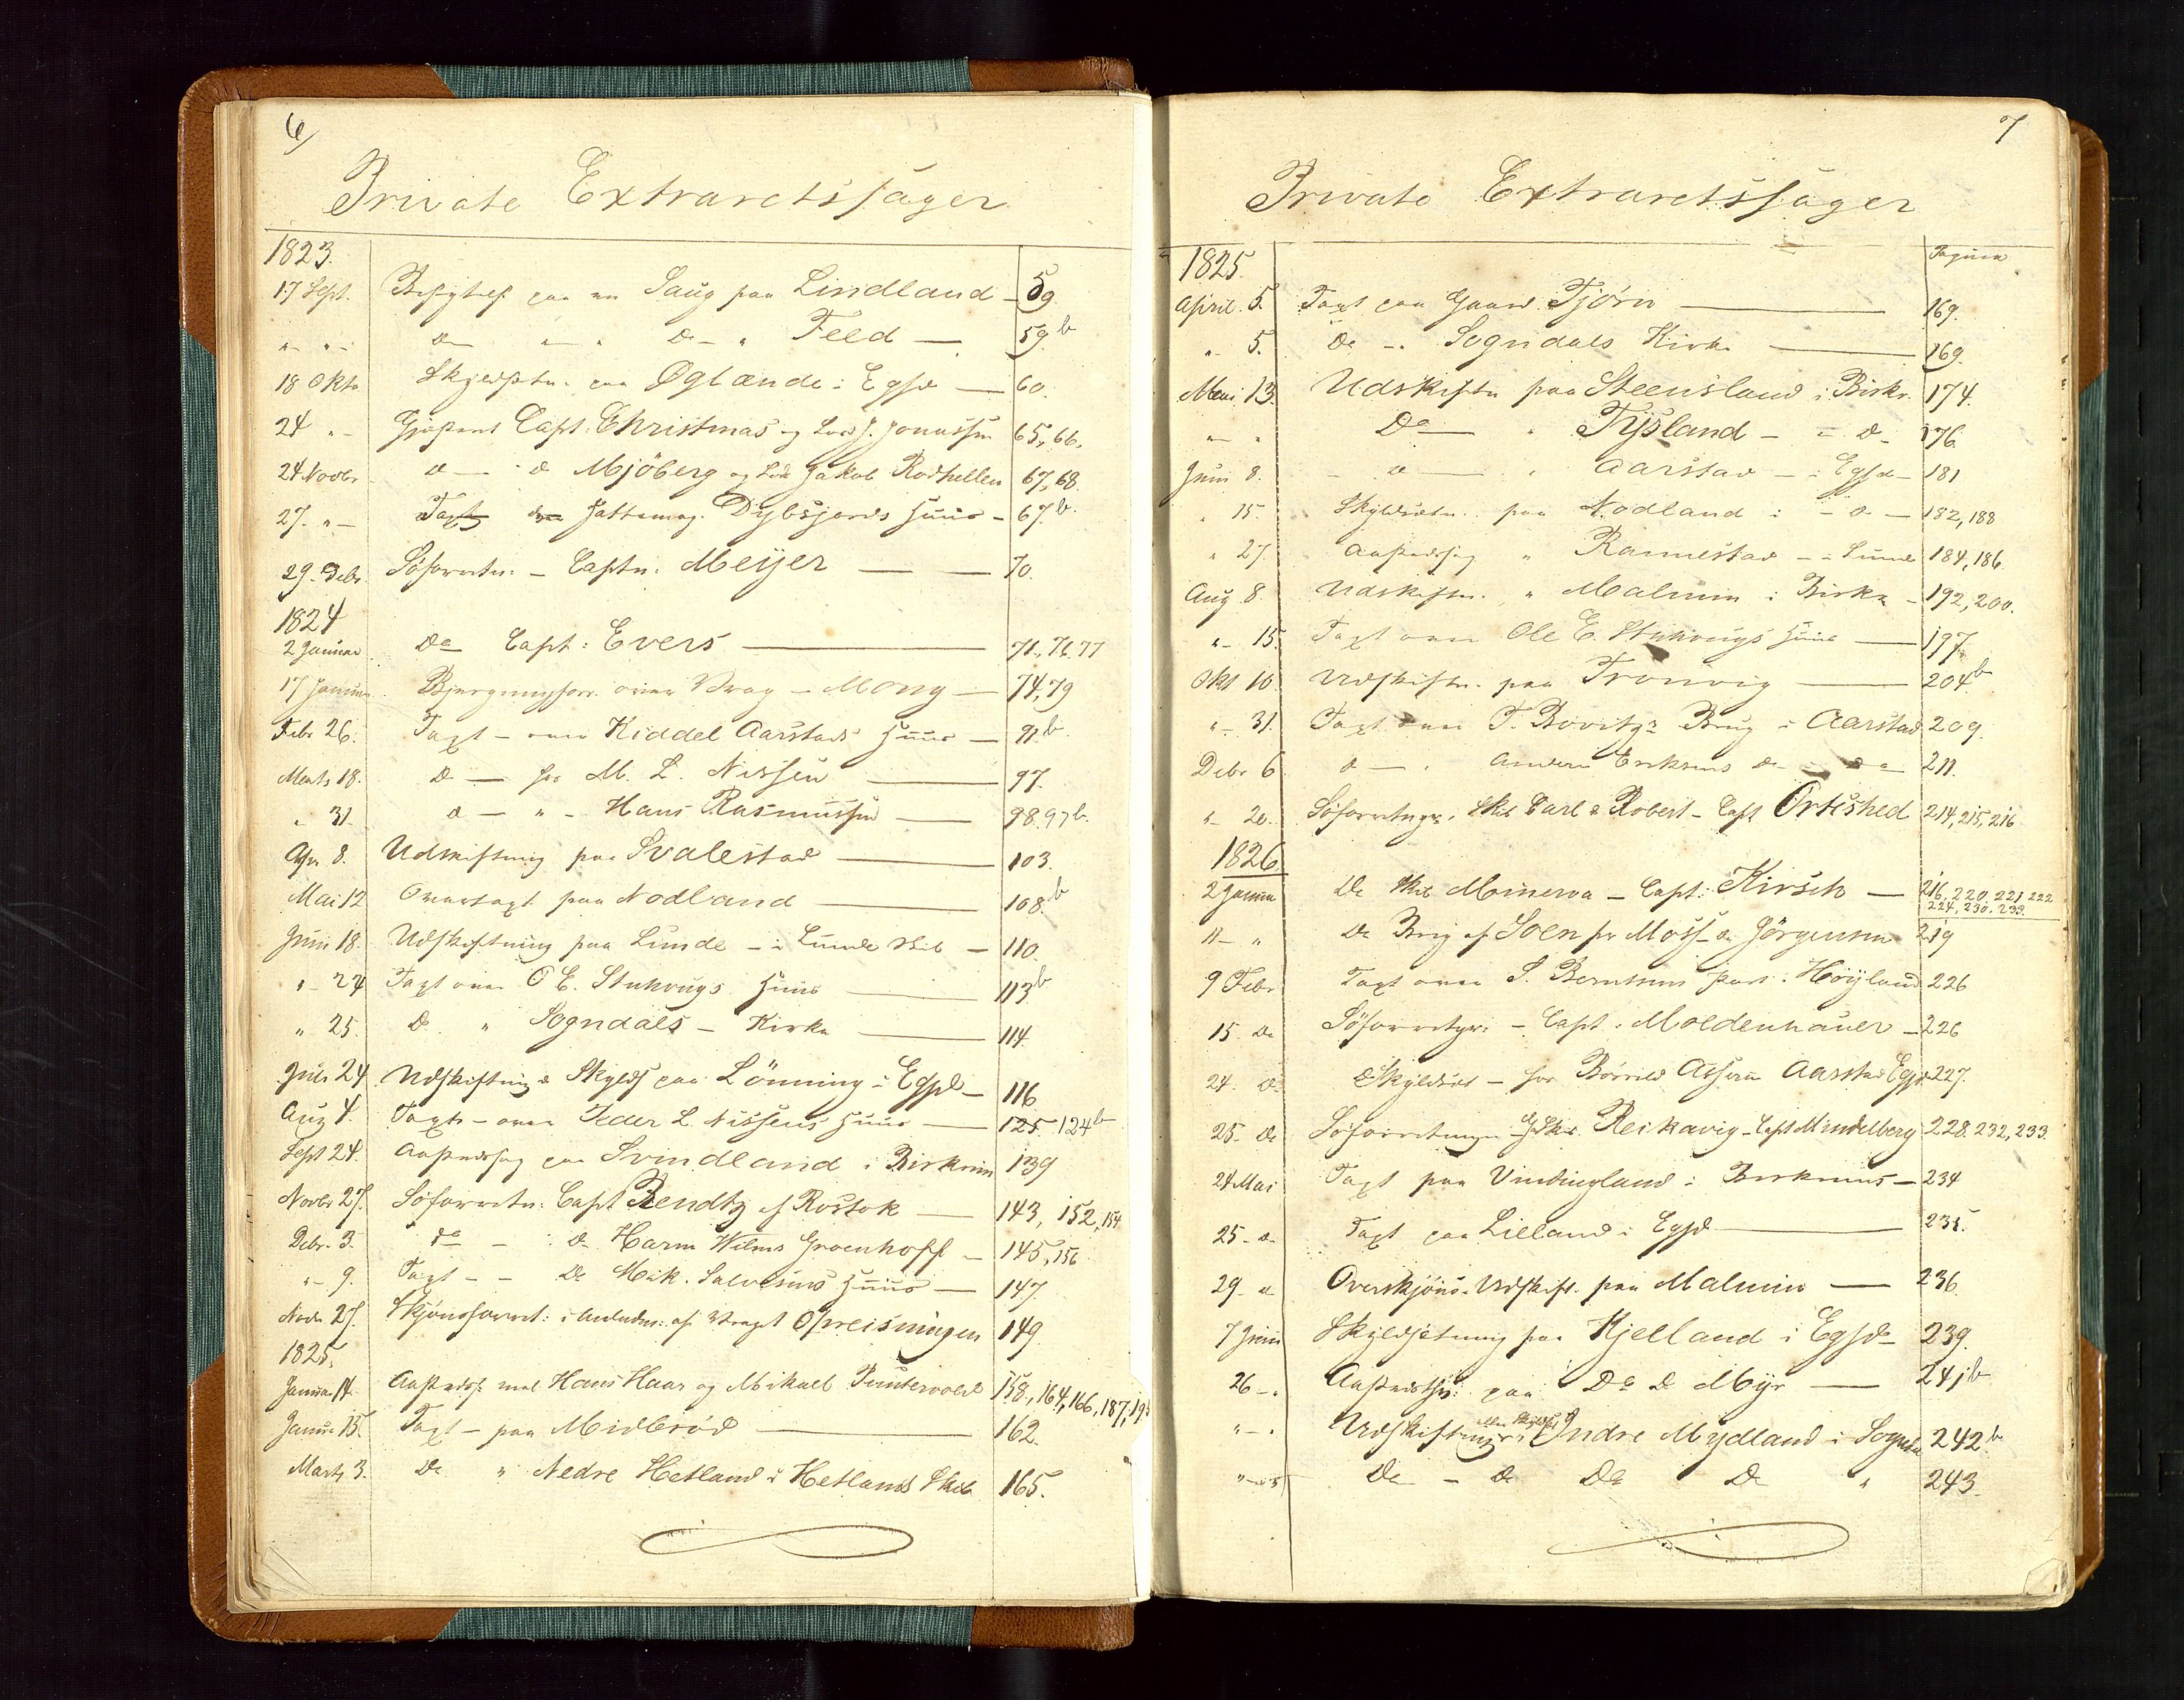 6
Private Extraretssager
1823.
17 Sept. Besigtels paa en Saug paa Lindland - 59
" " - d " - De - " Feld - 59 b
18 Oktb Skyldsætn. paa Øglænde i Egsd - 60.
24 " - Capt. Christmas og Lods J. Jonassen 65, 66,
24 Novbr d - d Mjöberg og Lods Jakob Rodhellen 67, 68.
27. " - Taxt Huus - 67. b.
29. Debr. Söforretn. - Captn. Meyer - 70.
1824
2 Januar De Capt: Evers - 71, 76. 77
17 Januar Bjergningsforr. over Vrag - Mong - 74, 79
Febr 26. Taxt - over Kiddel Aarstads Huus - 91. b.
Marts 18. D - for M. L. Nissen - 97.
" 31. d - " - Hans Rasmussen - 98. 97 b.
Apr 8. Udskiftning paa Svalestad - 103.
Mai 12 Overtaxt paa Nodland - 108. b
Juni 18. Udskiftning paa Lunde - i Lunde Skib - 110.
" - 24 Taxt over O E. Stuhougs Huus - 113 b
" 25. D. " Sogndals - Kirke - 114.
Juli 24 Udskiftning & Skylds paa Lönning i Egsd - 116
Aug 4. Taxt - over Peder L. Nissens Huus - 125. 124 b
Sept 24. Aastedssag paa Svindland i Birkrim 139
Novbr 27. Söforretn: Capt Rendtz af Rostok - 143, 152, 154
Debr. 3. do - d. Harm Wilms Groenhoff - 145, 156
" - 9. Taxt - - De Mik. Salvesens Huus - 147
Novbr 27. Skjönsforret: i Anledn: af Vraget Opreisningen 149.
1825.
Januar 14. Aastedss. mel Hans Haar og Mikael Puntervold 158, 164, 166, 187, 19
Januar 15. Taxt - paa Midbröd - 162.
Marts 3. De " Nedre Hetland i Hetlands Skib 165.
7
Private Extraretssager
1825. Pagina
April. 5. Taxt paa Gaard Tjörn - 169.
" 5. De - Sogndals Kirke - 169.
Mai 13. Udskiftn paa Steensland i Birkr. 174.
" " De - " Tysland - - d - 176
Juni 8. - d - " Aarstad - i Egsd - 181
" 15. Skyldsætn. paa Nodland i - d - 182, 188
" 27. Aastedssag " Rannestad - i Lunde 184, 186.
Aug 8. Udskiftn. " Malmin i Birkr - 192, 200.
" - 15. Taxt over Ole E. Stuhougs Huus - 197.
Okt 10. Udskiftn. paa Tronvig - 204 b
" - 31. Taxt over T. Bovitz's Brug i Aarstad 209
Debr 6 d - " Anders Eriksens De - Do 211.
" - 20. Söforretngr. Skib Carl & Robert - Capt Ortished 214, 215, 216
1826
2 Januar De Skib Minerva - Capt: Kirsch - 216. 220. 221 222
224, 230. 233.
11 - " De Brig af Soen pr Moss - d Jörgensen 219
9 Febr Taxt over S. Berntsens part i Höyland 226
15. De Söforretgr: - Capt: Moldenhauer - 226
24. d Skyldsæt - for Börrild Assers Aarstad Egsd 227.
25. de Söforretninger Skib Reikavig - Capt Mindelberg 228. 232, 233.
24 Mai Taxt paa Vindingland i Birkrims - 234
25 - d - Taxt paa Lilland i Egsd - 235.
29 - d Overskjöns - Udskift. paa Malmin - 236.
7 Juni Skyldsætning paa Kjelland i Egsd - 239.
26 - " Aasteds paa Do d Myr - 241 b
" - " Udskiftninger Indre Mydland i Sognd 242. b
" De - d De De " 243